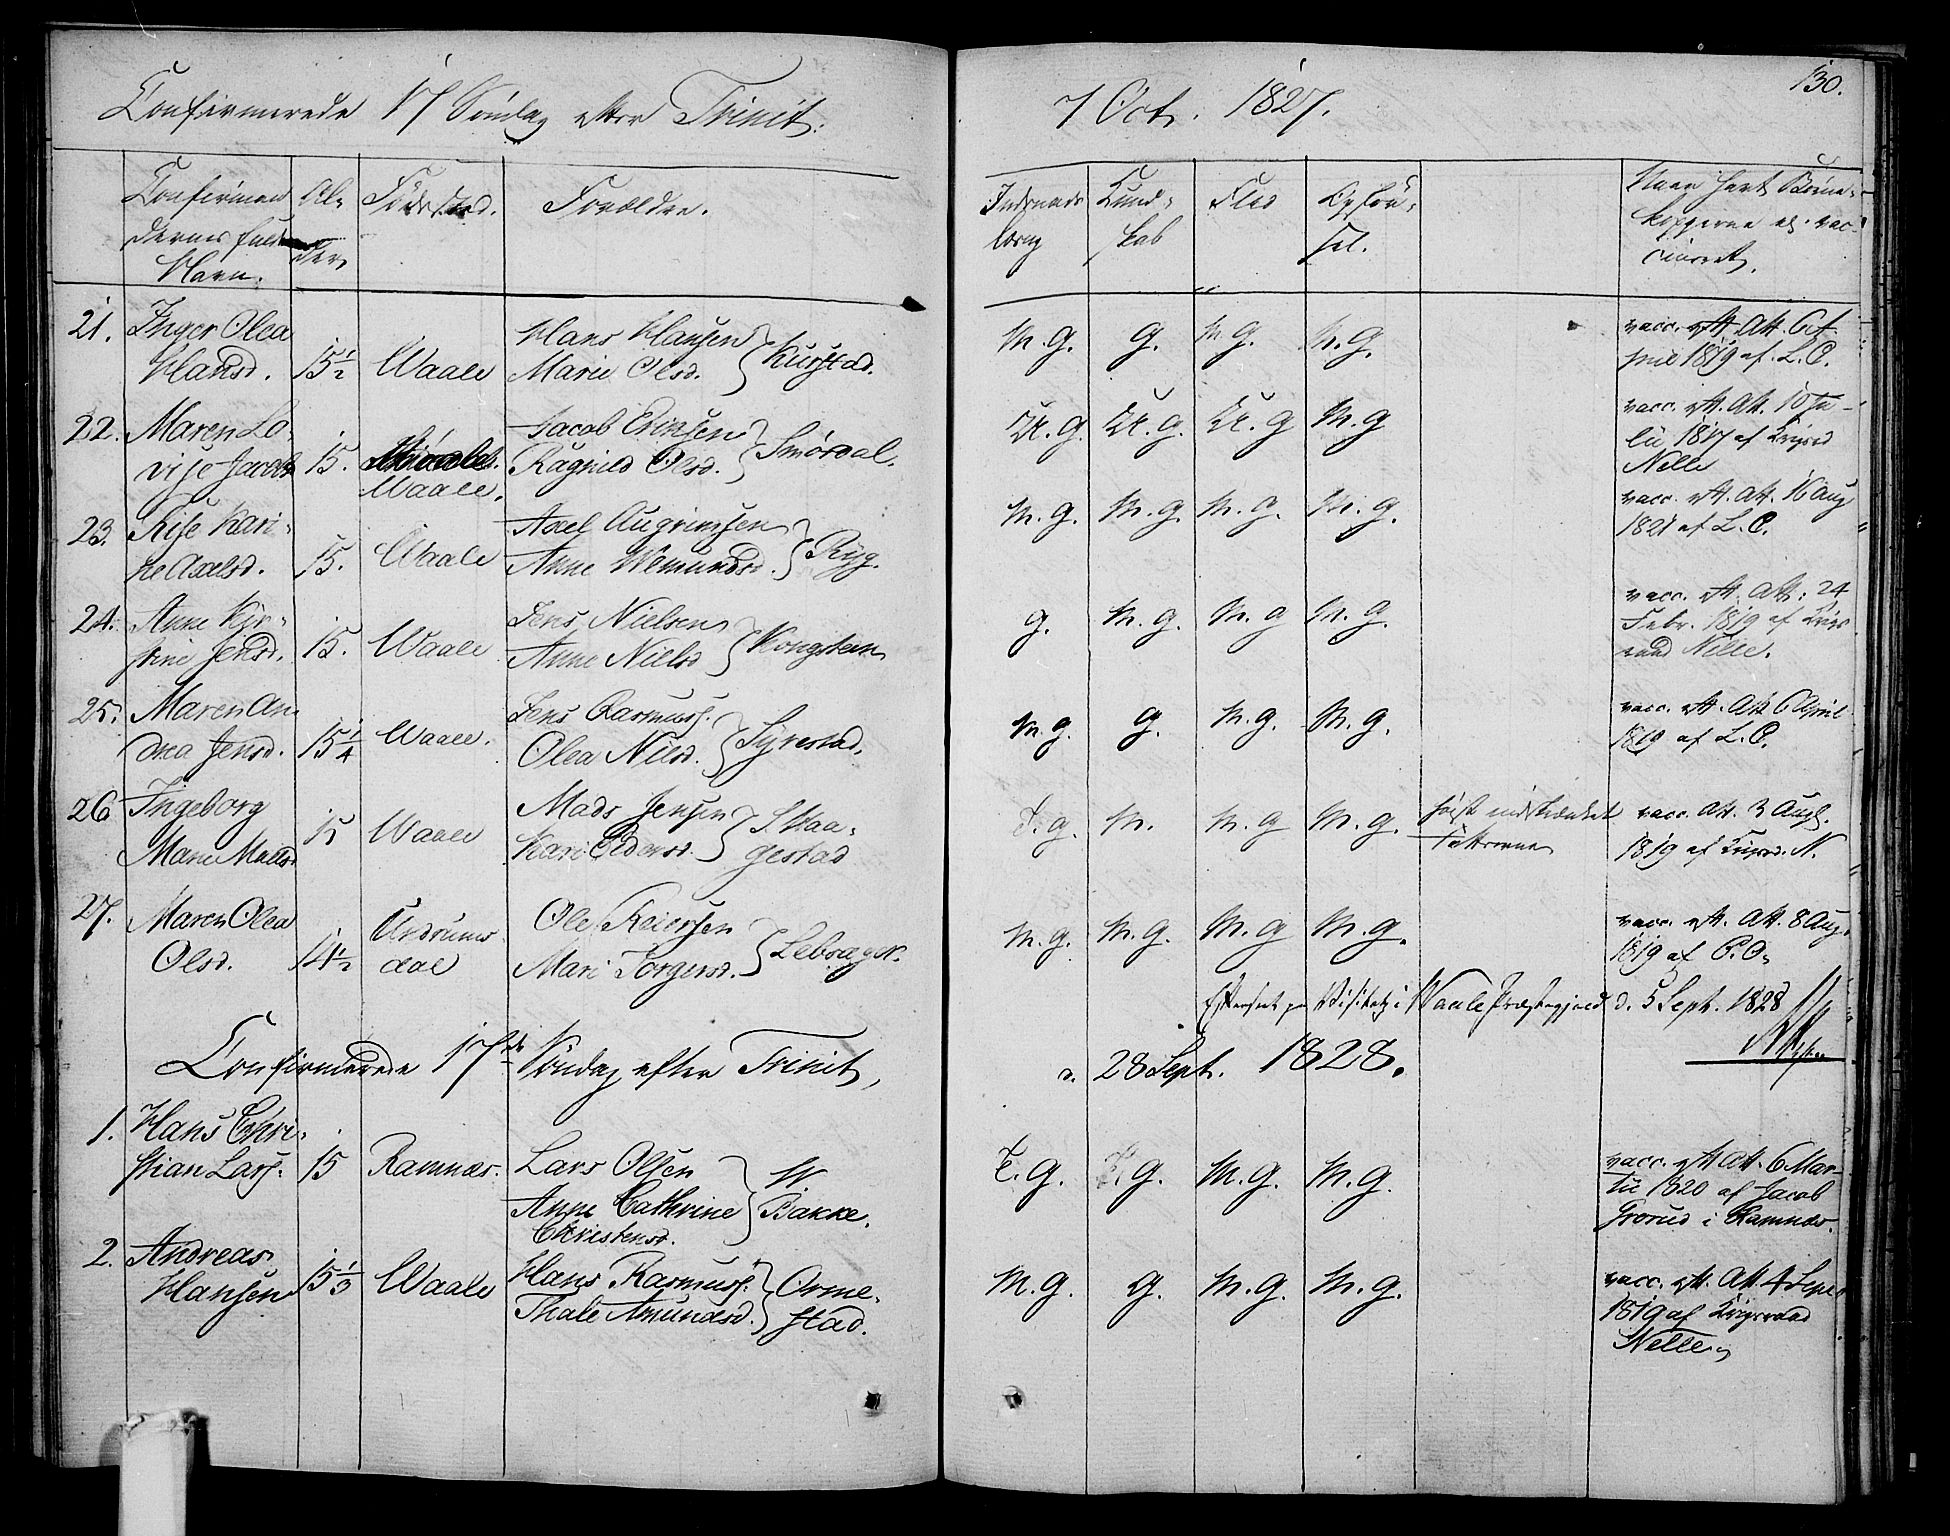 130.
Confirmerede 17 Söndag efter Trinit: 7 Oct. 1827.
Confirman
dernes fulde
Navn.
Al-
der
Födested.
Forældre.
Kund-
skab
Flid
Opför-
sel.
Naar havt Börne-
kopperne el. vac-
cineret.
21. Inger Olea
Hansd. 15 1/2 Waale
Hans Hansen
Marie Olsd. } Kurstad.
M. G. G. M. G. M. G.
vacc. Att. 6 A
pril 1819 af L. O.
22. Maren Lo-
vise Jacobs 15. Waale.
Jacob Ericksen
Ragnild Olsd. } Smördal.
M. G
vacc. Att. 10 Ju-
lii 1817 af
Nelle
23. Kari-
ne Axelsd. 15. Waale
Axel Augrimsen
Anne Wemundsd. } Ryg.
M. G. M. G. M. G. M. G.
vacc. Att. 16 Aug
1821 af L. O.
24. Anne Kir-
stine Jensd. 15. Waale
Jens Nielsen
Anne Nielsd } Kongsteen
G. M. G. M. G M. G.
vacc. Att. 24
Febr. 1819 af
Nelle.
25. Maren An-
drea Jensd. 15 1/4 Waale.
Jens Rasmuss.
Olea Nilsd. } Syrestad.
M. G. G. M. G. M. G.
vacc. Att 6 April
1819 af L. O.
26 Ingeborg
Marie Madsd 15 Waale
Mads Jensen
Kari Pedersd. } S. Haa-
gestad
T. G. M. M. G M. G.
höist indskrænket
vacc. Att. 3 Aug.
1819 af N.
27. Maren Olea
Olsd. 14 1/2 Undrums-
dal
Ole Reiersen
Mari Torgersd.
M. G. M. G. M. G M. G.
vacc. Att. 8 Aug.
1819 af
Visitatz i Waale Præstegjeld d. 5 Sept. 1828
Confirmerede 17de Söndag efter Trinit, d. 28 Sept. 1828.
1. Hans Chri-
stian Lars. 15 Ramnæs.
Lars Olsen
Anne Cathrine
Christensd. } N
Bakke.
T. G. T. G. M. G. M. G.
vacc. Att. 6 Mar-
tii 1820 af Jacob
Grorud i Ramnæs.
2. Andreas
Hansen 15 1/3 Waale
Hans Rasmuss.
Thale Amundsd. } Orme-
stad.
M. G. G. M. G. M. G.
vacc. Att. 4 Sept
1819 af
Nelle